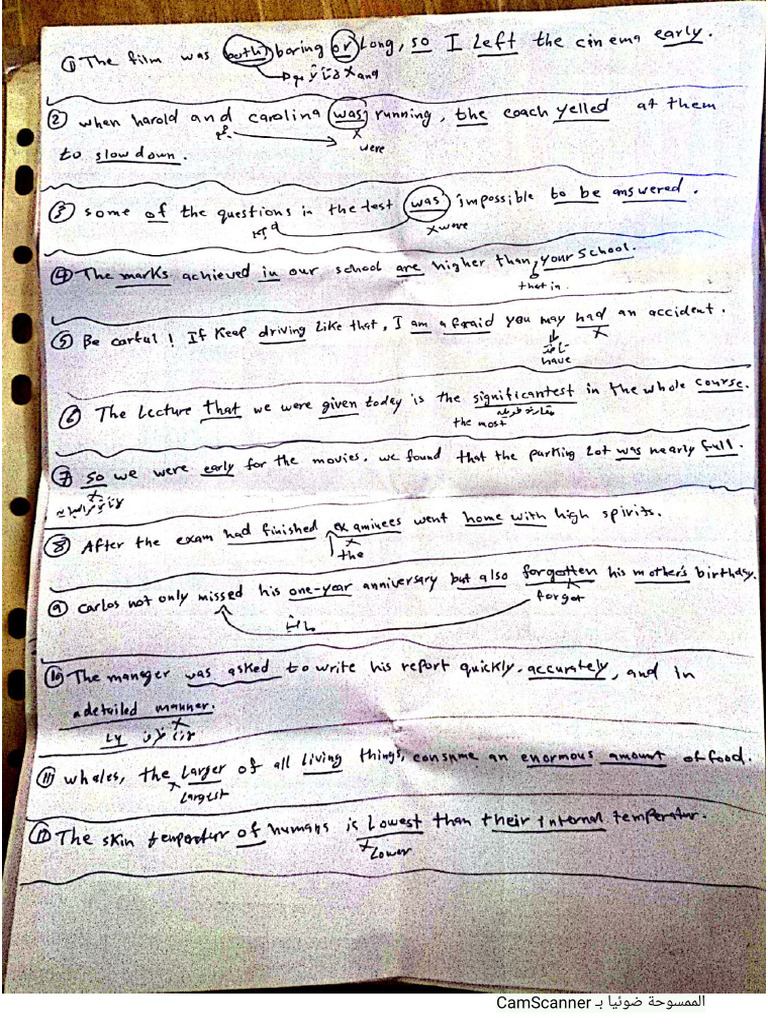 ① The film was both boring or long, so I left the cinema early.
x and
② when harold and carolina was running, the coach yelled at them
x
were
to slow down.
③ some of the questions in the test was impossible to be answered.
x were
④ The marks achieved in our school are higher than your school.
that in
⑤ Be carful! If keep driving like that, I am afraid you may had an accident.
x
have
⑥ The Lecture that we were given today is the significantest in the whole course.
the most
⑦ so we were early for the movies. we found that the parking lot was nearly full.
x
⑧ After the exam had finished examinees went home with high spirits.
x
the
⑨ Carlos not only missed his one-year anniversary but also forgotten his mother's birthday.
x
forgot
⑩ The manager was asked to write his report quickly, accurately, and in
a detailed manner.
x
Ly
⑪ whales, the larger of all living things, consume an enormous amount of food.
x
Largest
⑫ The skin temportur of humans is Lowest than their internal temperatur.
x
Lower
الممسوحة ضوئيا بـ CamScanner